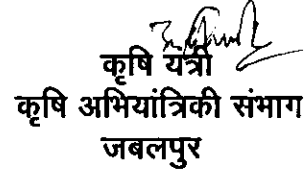 कृषि यंत्री
कृषि अभियांत्रिकी संभाग
जबलपुर